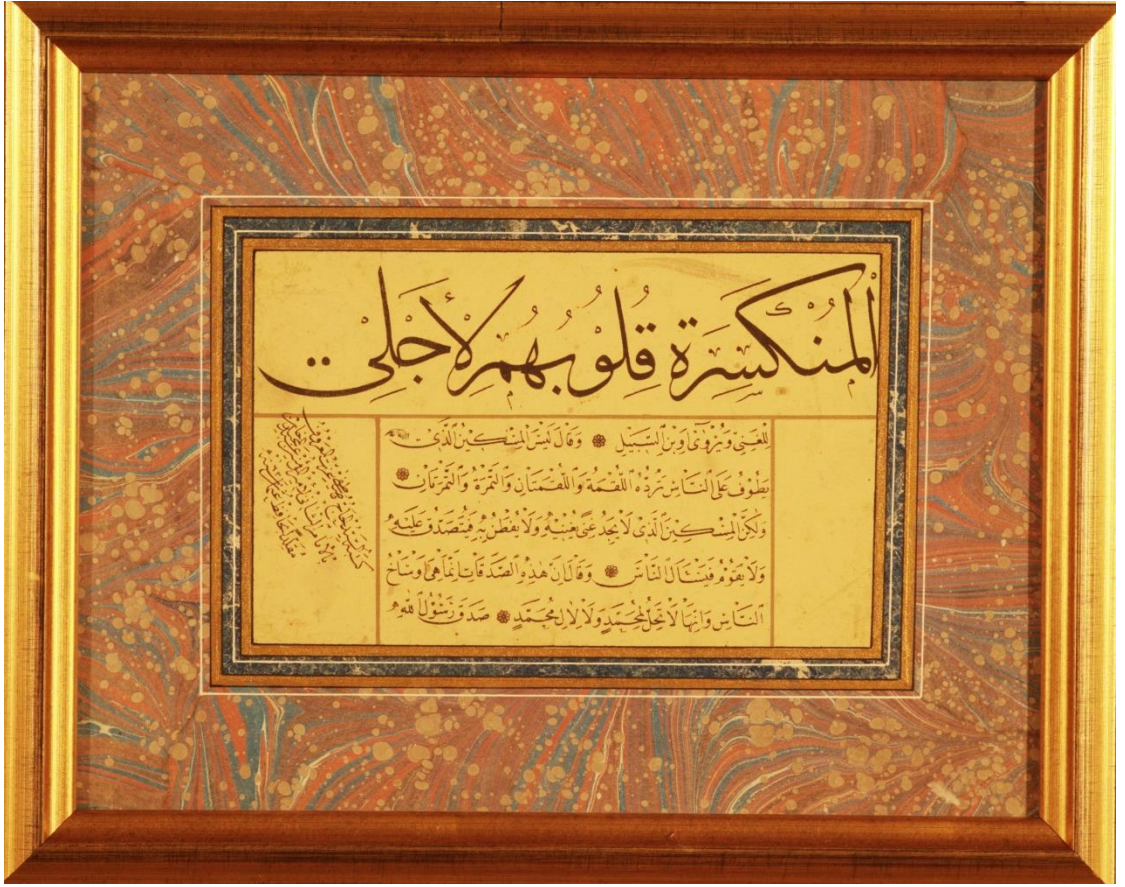 الْمُنْكَسِرَةِ قُلُوبُهُمْ لِأَجْلِي
لِلْغَنِيِّ وَيُرْوَى اوِبْنِ السَّبِيلِ وَقَالَ لَيْسَ الْمِسْكِينُ الَّذِي
يَطُوفُ عَلَى النَّاسِ تَرُدُّهُ اللُّقْمَةُ وَاللُّقْمَتَانِ وَالتَّمْرَةُ وَالتَّمْرَتَانِ
وَلَكِنَّ الْمِسْكِينَ الَّذِي لَا يَجِدُ غِنًى يُغْنِيهِ وَلَا يُفْطَنُ بِهِ فَيُتَصَدَّقُ عَلَيْهِ
وَلَا يَقُومُ فَيَسْأَلُ النَّاسَ وَقَالَ اِنَّ هَذِهِ الصَّدَقَاتِ اِنَّمَا هِيَ اَوْسَاخُ
النَّاسِ وَاِنَّهَا لَا تَحِلُّ لِمُحَمَّدٍ وَلَا لِاٰلِ مُحَمَّدٍ صَدَقَ رَسُولُ اللهِ